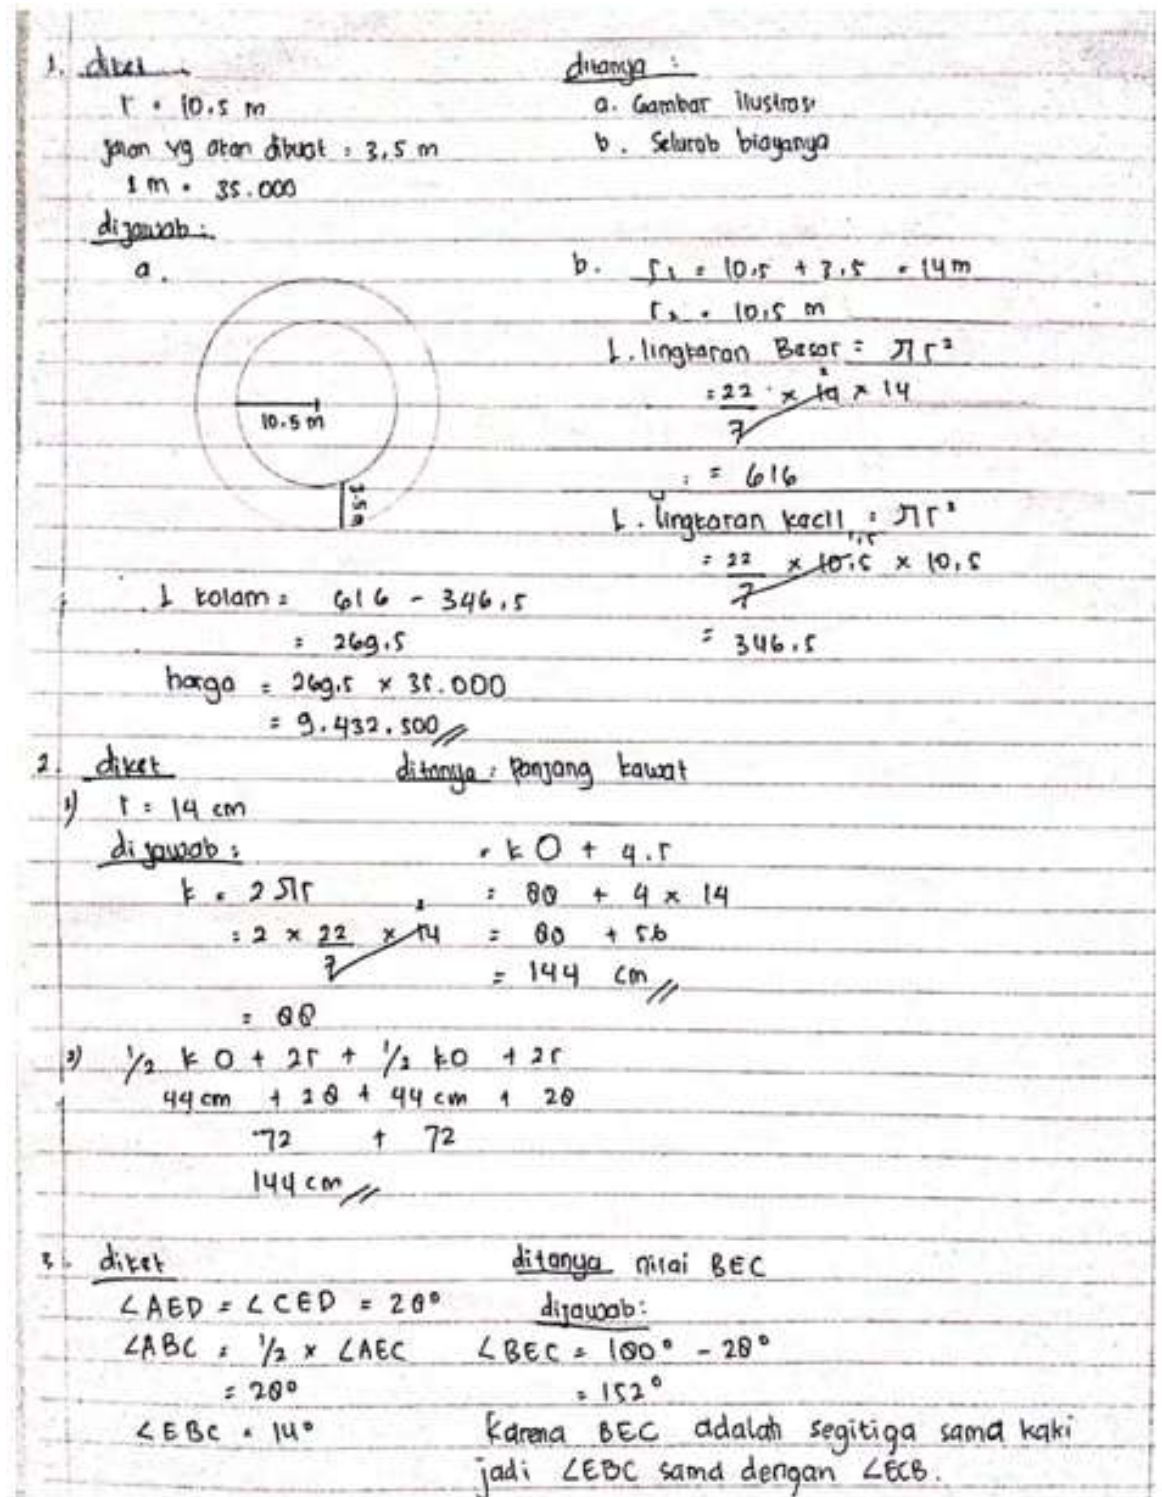 1. diket
r = 10.5 m
jalan yg akan dibuat = 3,5 m
1 m = 35.000
ditanya :
a. Gambar ilustrasi
b. Seluruh biayanya
dijawab :
a.
10.5 m
3.5 m
b. r₁ = 10.5 + 3.5 = 14 m
r₂ = 10.5 m
L. lingkaran Besar = πr²
= 22/7 × 14 × 14
2
= 616
L. lingkaran kecil = πr²
1,5
= 22/7 × 10.5 × 10.5
= 346.5
L kolam = 616 - 346.5
= 269.5
harga = 269.5 × 35.000
= 9.432.500 //
2. diket
ditanya : Panjang kawat
1) r = 14 cm
dijawab :
k = 2πr
= 2 × 22/7 × 14
2
= 88
= k O + 4.r
= 88 + 4 × 14
= 88 + 56
= 144 cm //
2) 1/2 k O + 2r + 1/2 k O + 2r
44 cm + 28 + 44 cm + 28
72 + 72
144 cm //
3. diket
∠AED = ∠CED = 28°
∠ABC = 1/2 × ∠AEC
= 28°
∠EBC = 14°
ditanya nilai BEC
dijawab :
∠BEC = 180° - 28°
= 152°
Karena BEC adalah segitiga sama kaki
jadi ∠EBC sama dengan ∠ECB.